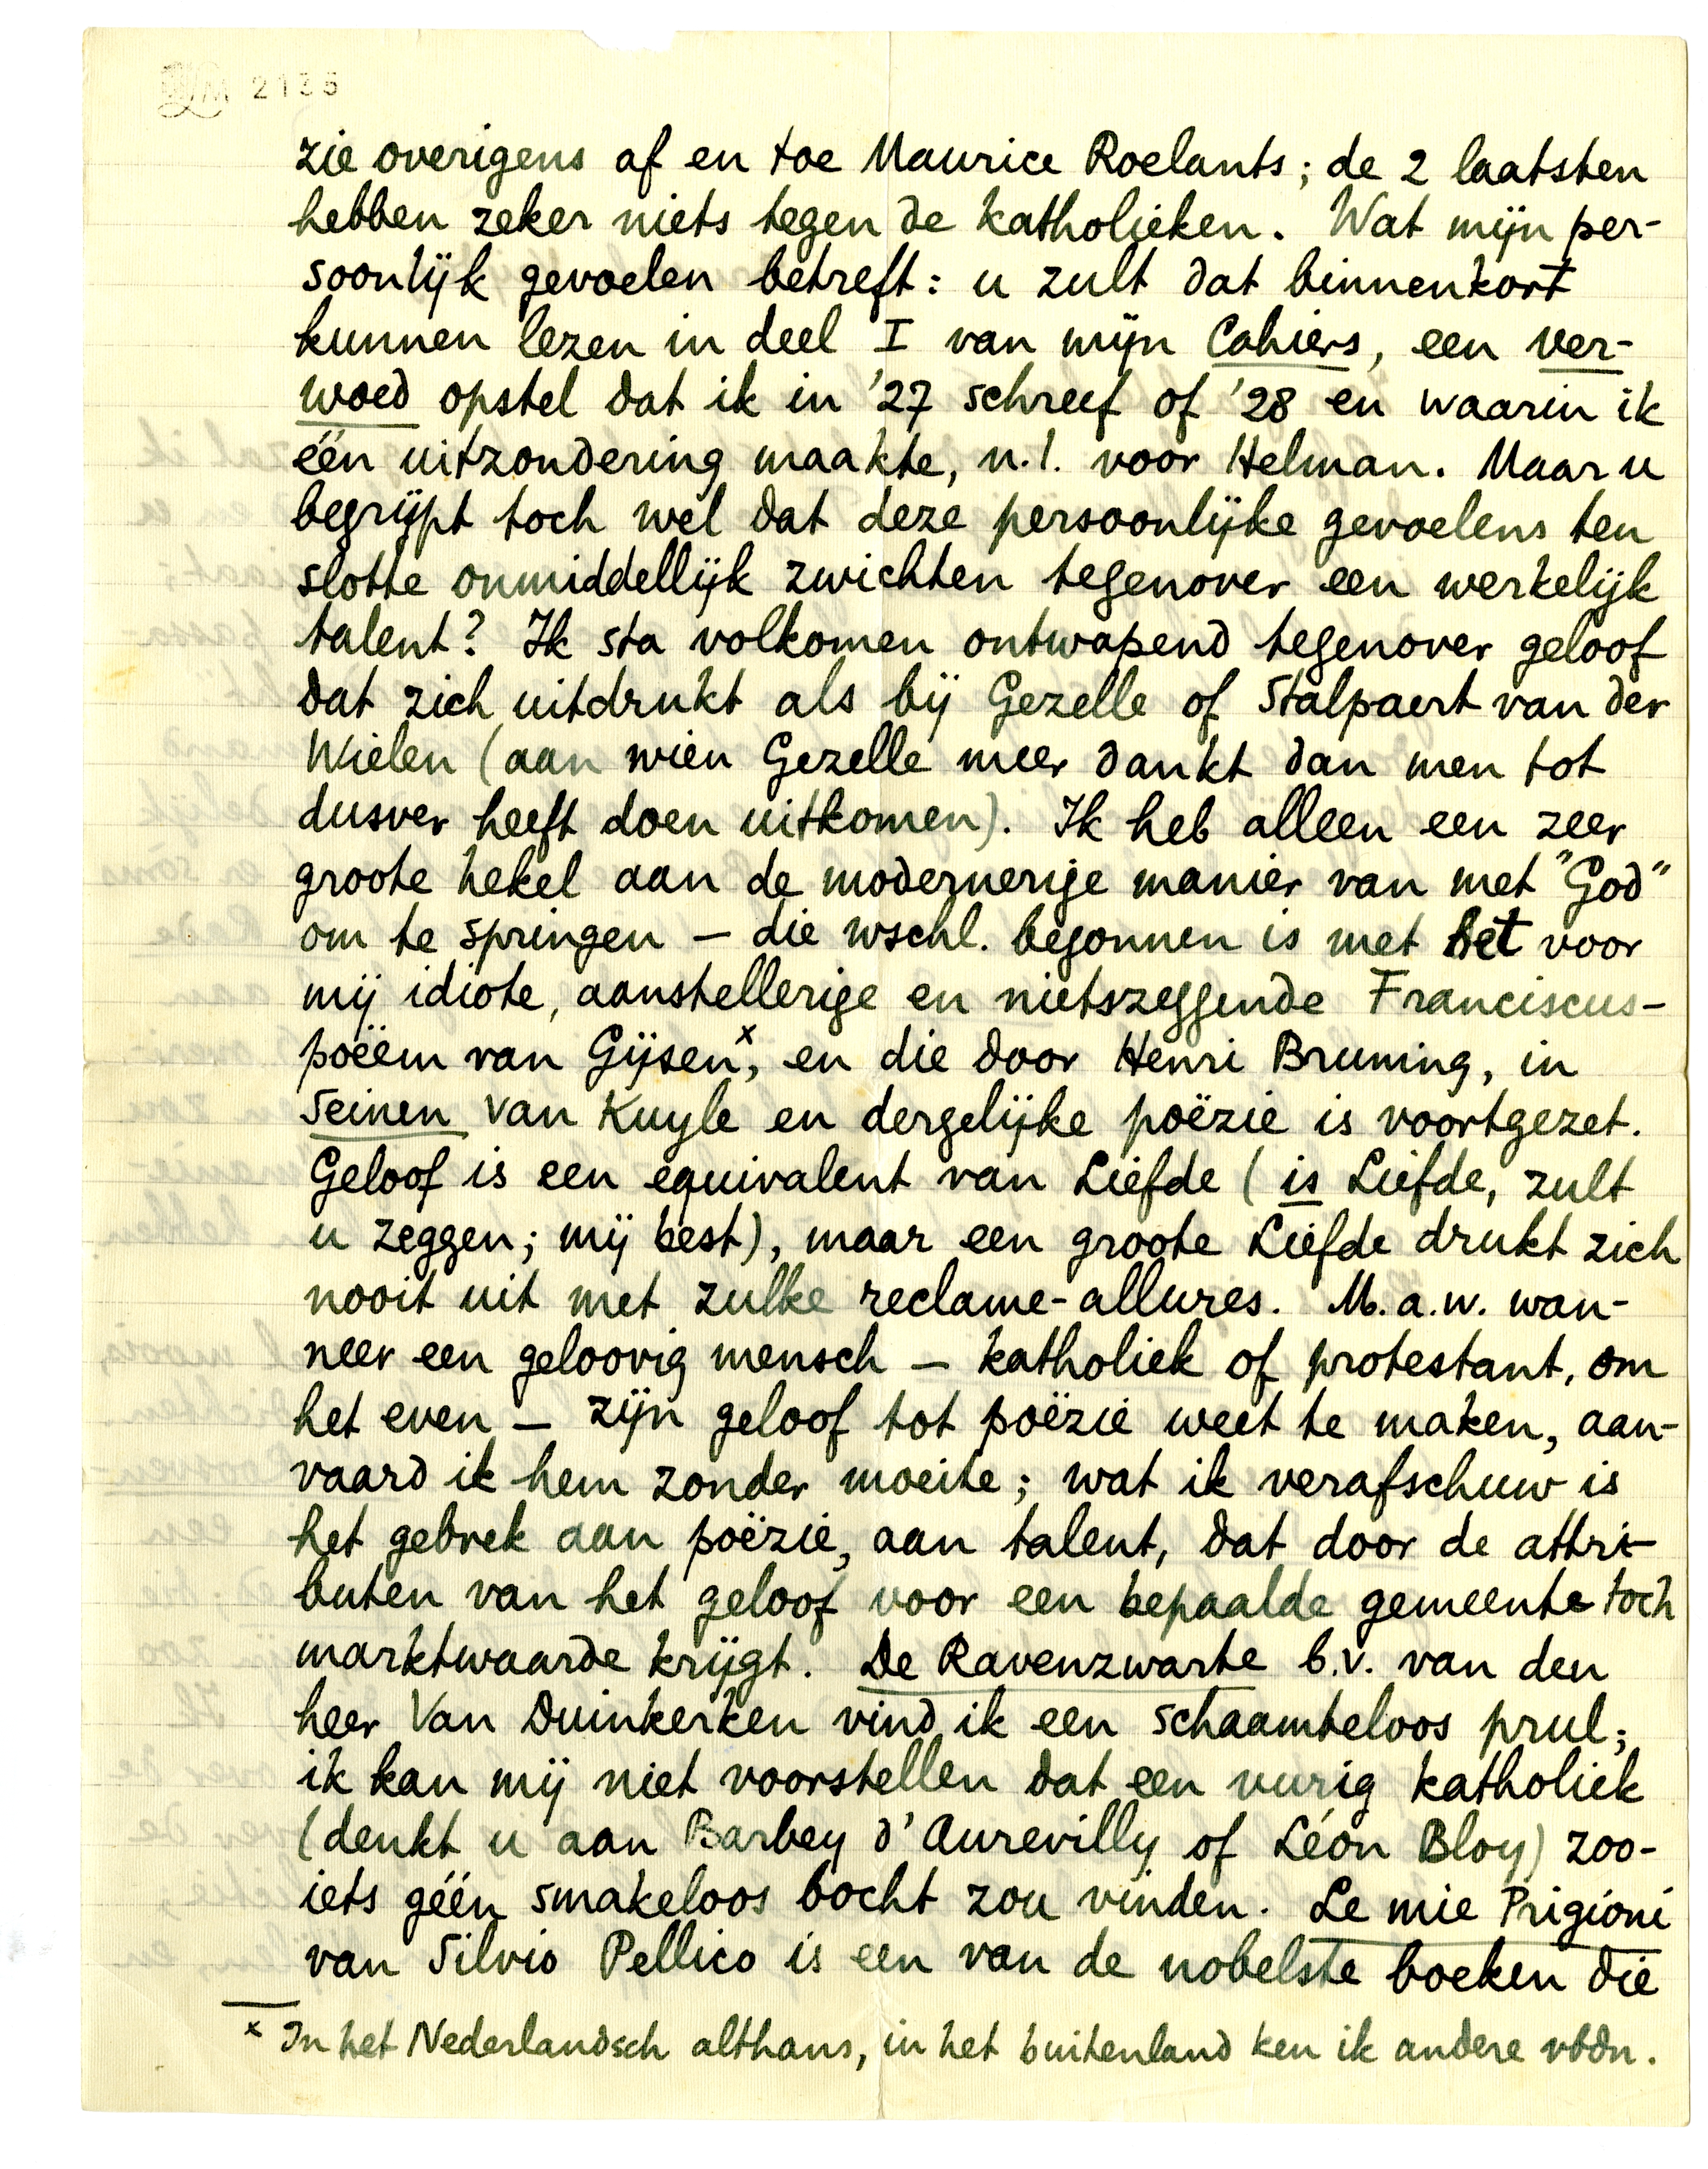 2135
zie overigens af en toe Maurice Roelants; de 2 laatsten
hebben zeker niets tegen de katholieken. Wat mijn per-
soonlijk gevoelen betreft: u zult dat binnenkort
kunnen lezen in deel I van mijn Cahiers, een ver-
woed opstel dat ik in '27 schreef of '28 en waarin ik
één uitzondering maakte, n.l. voor Helman. Maar u
begrijpt toch wel dat deze persoonlijke gevoelens ten
slotte onmiddellijk zwichten tegenover een werkelijk
talent? Ik sta volkomen ontwapend tegenover geloof
dat zich uitdrukt als bij Gezelle of Stalpaert van der
Wielen (aan wien Gezelle meer dankt dan men tot
dusver heeft doen uitkomen). Ik heb alleen een zeer
groote hekel aan de modernerige manier van met "God"
om te springen — die wschl. begonnen is met het voor
mij idiote, aanstellerige en nietszeggende Franciscus-
poëem van Gijsen x, en die door Henri Bruning, in
Seinen van Kuyle en dergelijke poëzie is voortgezet.
Geloof is een equivalent van Liefde (is Liefde, zult
u zeggen; mij best), maar een groote Liefde drukt zich
nooit uit met zulke reclame-allures. M.a.w. wan-
neer een geloovig mensch — katholiek of protestant, om
het even — zijn geloof tot poëzie weet te maken, aan-
vaard ik hem zonder moeite; wat ik verafschuw is
het gebrek aan poëzie, aan talent, dat door de attri-
buten van het geloof voor een bepaalde gemeente toch
marktwaarde krijgt. De Ravenzwarte b.v. van den
heer Van Duinkerken vind ik een schaamteloos prul;
ik kan mij niet voorstellen dat een vurig katholiek
(denkt u aan Barbey d'Aurevilly of Léon Bloy) zoo-
iets géén smakeloos bocht zou vinden. Le mie Prigioni
van Silvio Pellico is een van de nobelste boeken die
x In het Nederlandsch althans, in het buitenland ken ik andere vbdn.